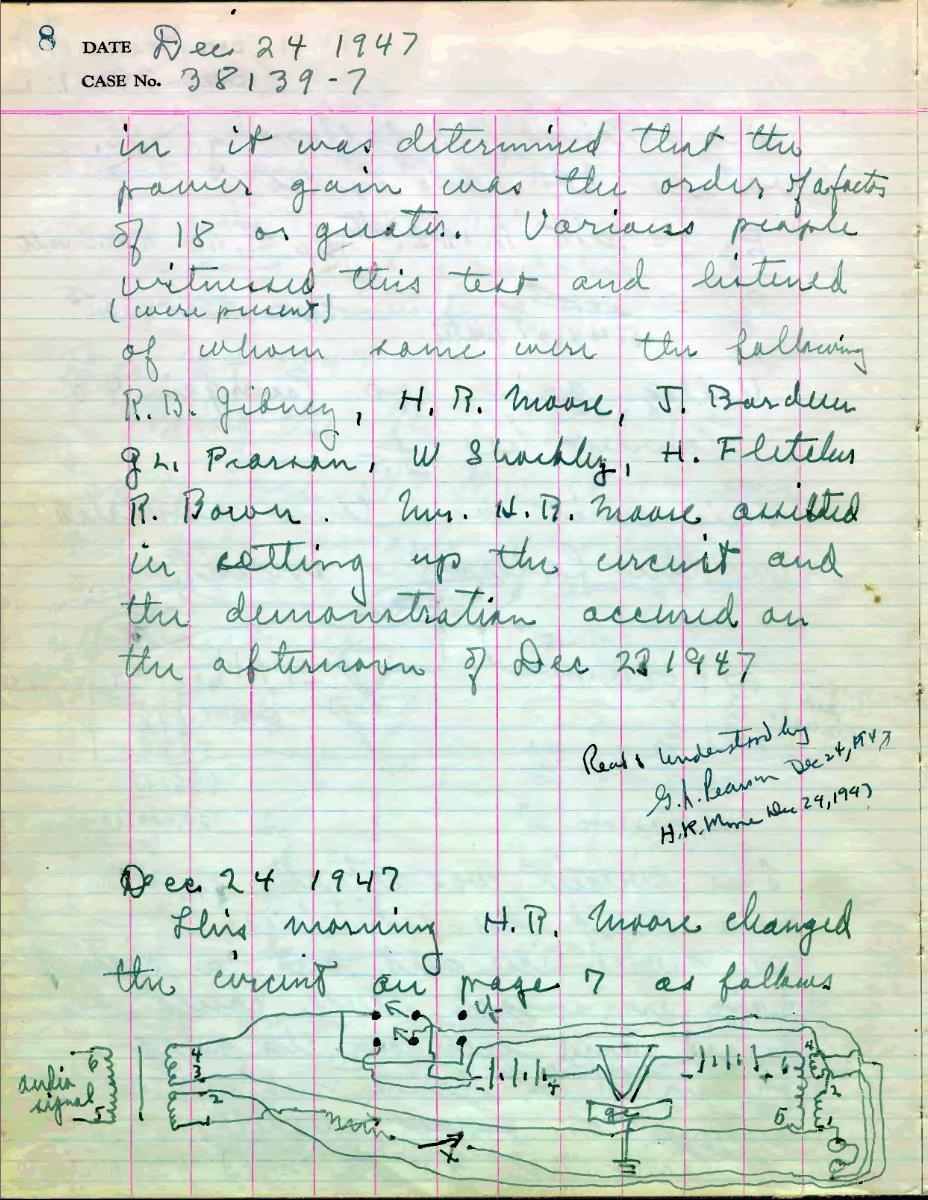 8 DATE Dec 24 1947
CASE No. 38139-7
in it was determined that the
power gain was the order of a factor
of 18 or greater. Various people
witnessed this test and listened
(were present)
of whom some were the following
R.B. Gibney, H. R. Moore, J. Bardeen
G.L. Pearson, W Shockley, H. Fletcher
R. Bown. Mr. H.R. Moore assisted
in setting up the circuit and
the demonstration occured on
the afternoon of Dec 23 1947
Read & Understood by
G.L. Pearson Dec 24, 1947
H.R. Moore Dec 24, 1947
Dec 24 1947
This morning H.R. Moore changed
the circuit on page 7 as follows
audio
signal
6
5
4
3
2
1
y
-
+
-
+
x
6
5
4
2
1